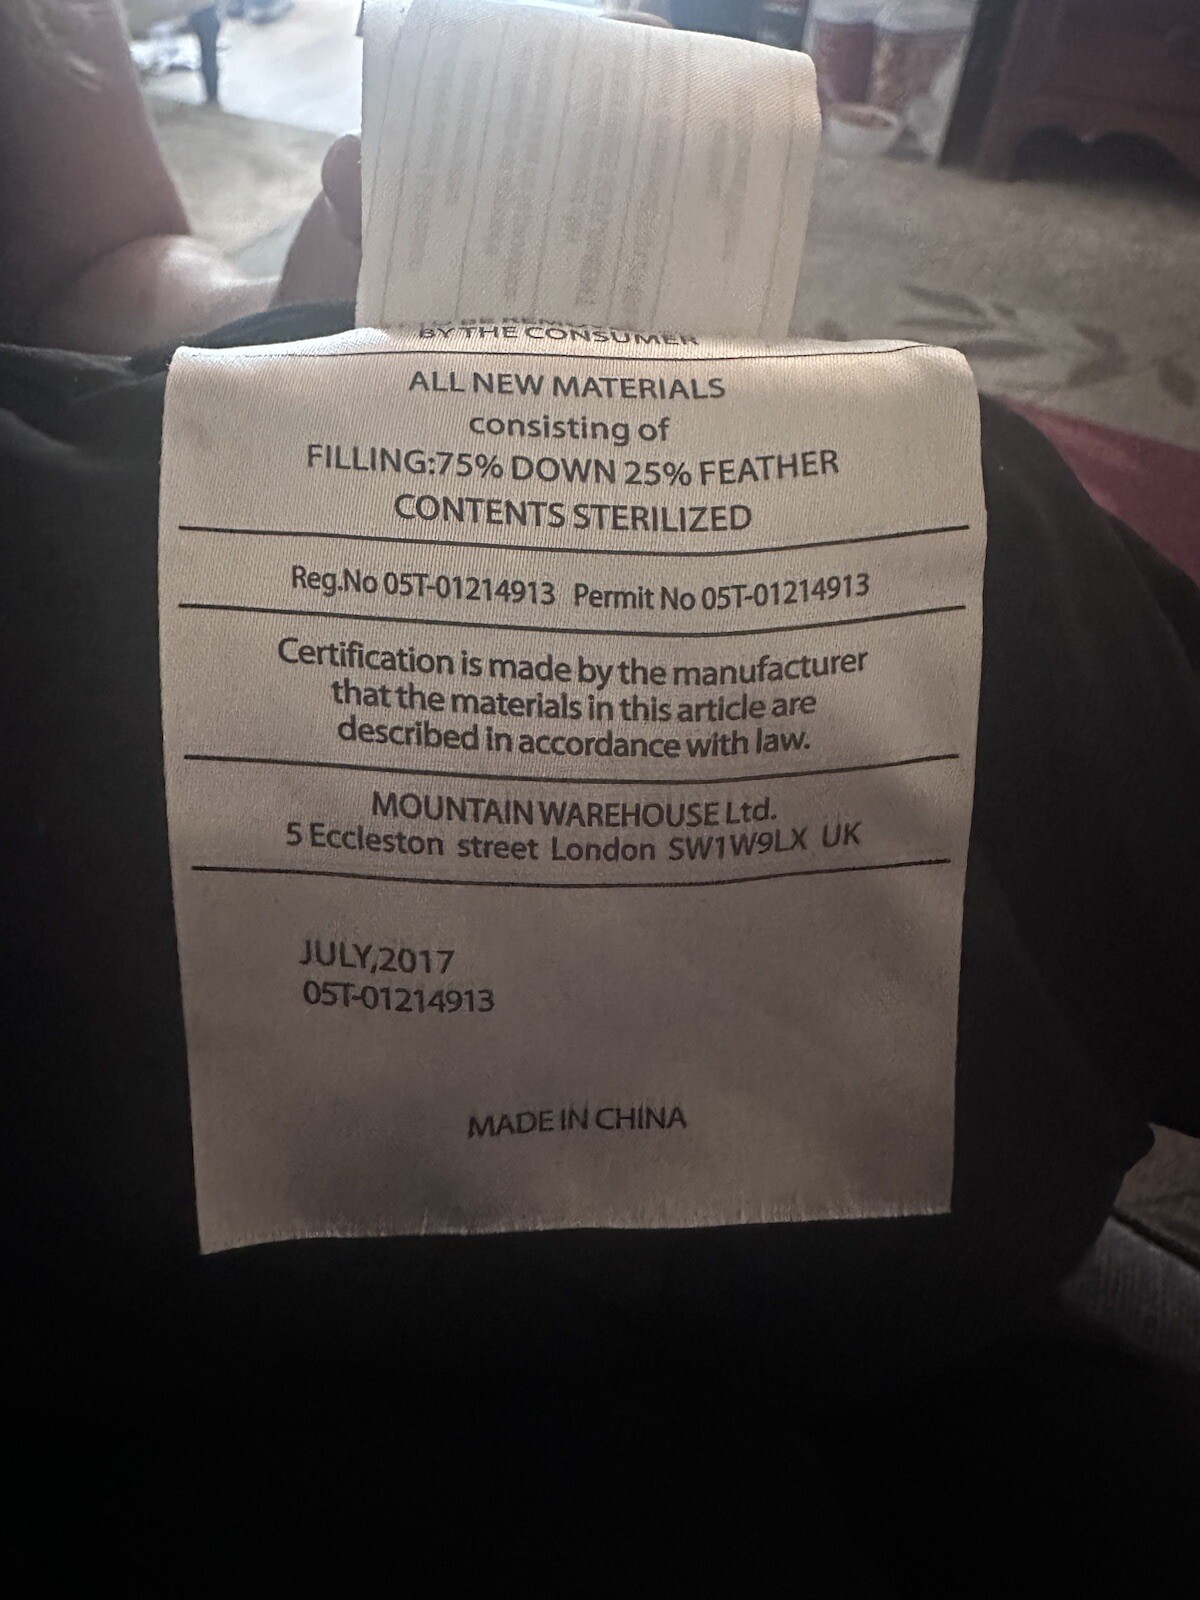 BY THE CONSUMER
ALL NEW MATERIALS
consisting of
FILLING:75% DOWN 25% FEATHER
CONTENTS STERILIZED
Reg.No 05T-01214913 Permit No 05T-01214913
Certification is made by the manufacturer
that the materials in this article are
described in accordance with law.
MOUNTAIN WAREHOUSE Ltd.
5 Eccleston street London SW1W9LX UK
JULY,2017
05T-01214913
MADE IN CHINA